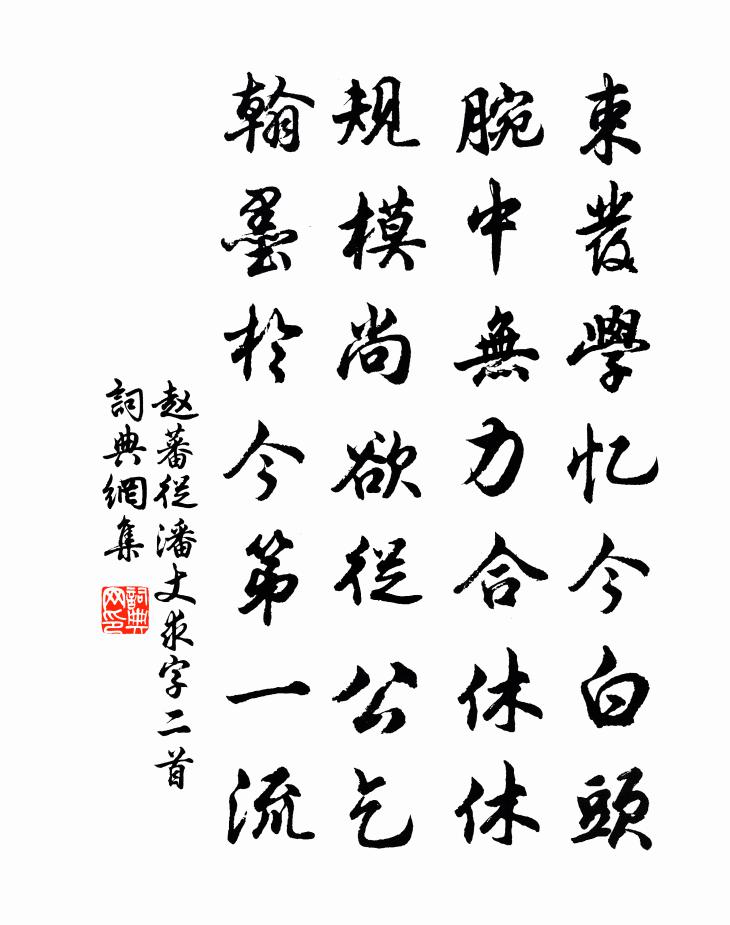 束發學忆今白頭
腕中無力合休休
規模尚欲從公乞
翰墨於今第一流
赵蕃從潘丈求字二首
詞典網集
詞典網印